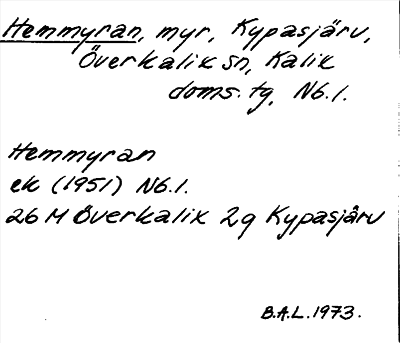 Hemmyran, myr, Kypasjärv,
Överkalix sn, Kalix
doms. tg, Nb.l.
Hemmyran
ek (1951) Nb.l.
26 M Överkalix 2g Kypasjärv
B.A.L. 1973.